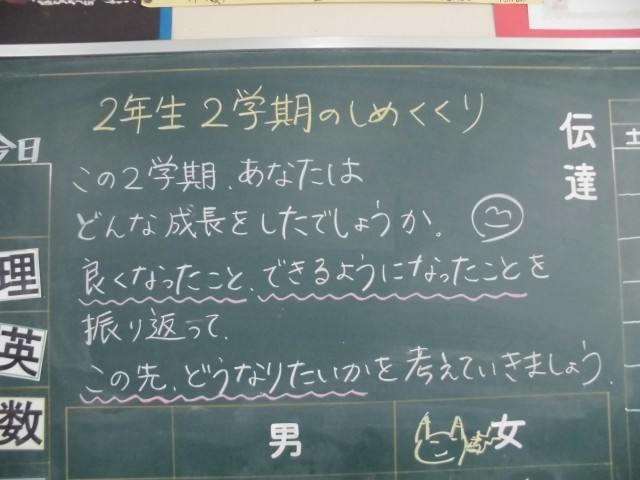 2年生2学期のしめくくり
この2学期、あなたは
どんな成長をしたでしょうか。
良くなったこと、できるようになったことを
振り返って、
この先、どうなりたいかを考えていきましょう。
伝達
今日
土
理
英
数
男
女